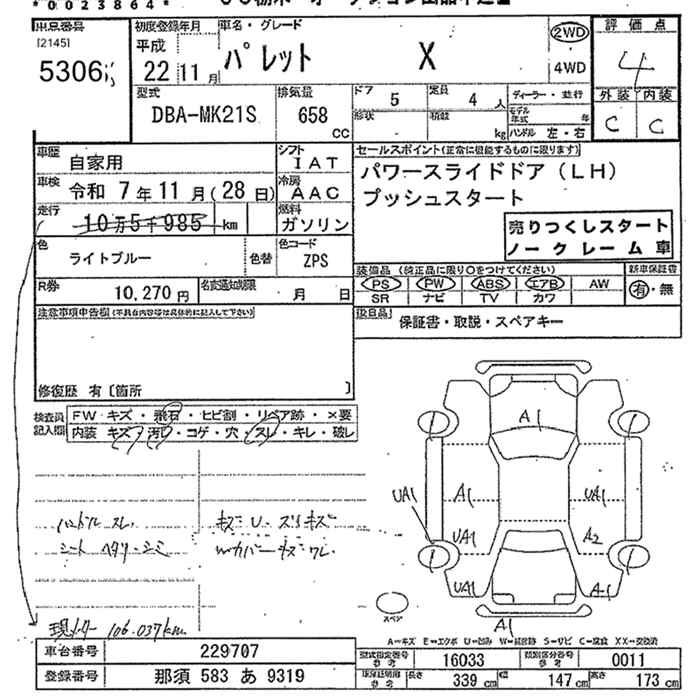 *0023864*
出品番号
[2145]
5306
初度登録年月
平成
22 11月
車名・グレード
パレット X
2WD
4WD
評価点
4
外装 内装
C C
型式
DBA-MK21S
排気量
658
CC
ドア
5
定員
4人
形状
-
積載
kg
ディーラー・並行
モデル年式 年
ハンドル 左・右
車歴
自家用
車検
令和 7年11月(28日)
走行
10万5千985km
シフト
IAT
冷房
AAC
燃料
ガソリン
色
ライトブルー
色替
色コード
ZPS
R券
10,270円
名変通知期限
月 日
セールスポイント(正常に機能するものに限ります)
パワースライドドア(LH)
プッシュスタート
売りつくしスタート
ノークレーム車
装備品 (純正品に限り○をつけてください)
PS PW ABS エアB AW
SR ナビ TV カワ
新車保証書
有・無
後日品
保証書・取説・スペアキー
注意事項申告欄(不具合内容等は具体的に記入して下さい)
修復歴 有〔箇所 〕
検査員
記入欄
FW キズ・飛石・ヒビ割・リペア跡・×要
内装 キズ・汚れ・コゲ・穴・スレ・キレ・破レ
ハンドル スレ
シート ヘタリ・シミ
キズ U・スリキズ
Wカバー キズ ワレ
現メーター 106.037km
A1
UA1
A1
UA1
UA1
A2
UA1
A-1
A1
スペア
A=キズ E=エクボ U=凹み W=補修跡 S=サビ C=腐食 XX=交換済
車台番号
229707
登録番号
那須 583 あ 9319
型式指定番号
参考
16033
類別区分番号
参考
0011
車保証明用
参考
長さ
339 cm
幅
147 cm
高さ
173 cm